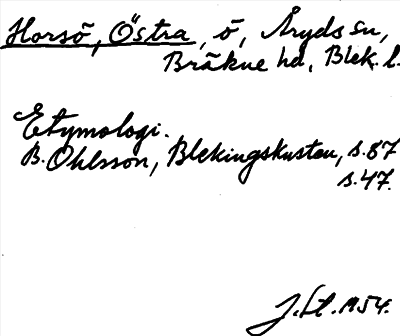 Horsö, Östra, ö, Åryds sn,
Bräkne hd, Blek. l.
Etymologi.
B. Ohlsson, Blekingskusten, s. 87
s. 47.
J. St. 1954.